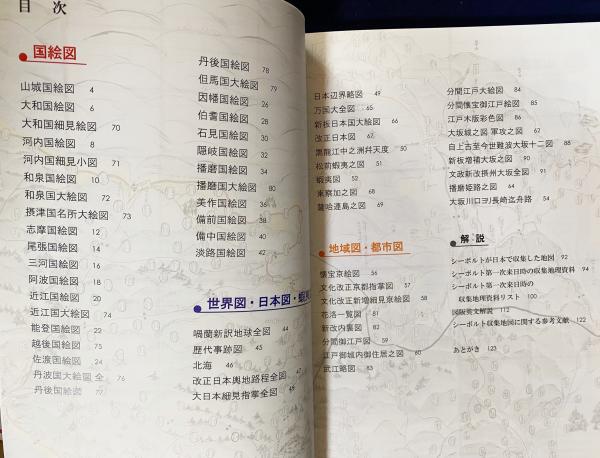 目次
国絵図
山城国絵図 4
大和国絵図 6
大和国細見絵図 70
河内国絵図 8
河内国細見小図 71
和泉国絵図 10
和泉国大絵図 72
摂津国名所大絵図 73
志摩国絵図 12
尾張国絵図 14
三河国絵図 16
阿波国絵図 18
近江国絵図 20
近江国大絵図 74
能登国絵図 22
越後国絵図 75
佐渡国絵図 24
丹波国大絵図 全 76
丹後国絵図 77
丹後国絵図 78
但馬国大絵図 79
因幡国絵図 26
伯耆国絵図 28
石見国絵図 30
隠岐国絵図 32
播磨国絵図 34
播磨国大絵図 80
美作国絵図 36
備前国絵図 38
備中国絵図 40
淡路国絵図 42
世界図・日本図・蝦夷
喎蘭新訳地球全図 44
歴代事跡図 45
北海 46
改正日本輿地路程全図 47
大日本細見指掌全図 48
日本辺界略図 49
万国大全図 65
新板日本国大絵図 66
改正日本図 67
黒龍江中之洲幷天度 50
松前蝦夷之図 51
蝦夷図 52
東察加之図 68
薩哈連島之図 69
地域図・都市図
懐宝京絵図 56
文化改正京都指掌図 57
文化改正新増細見京絵図 58
花洛一覧図 81
新改内裏図 82
分間江戸之図 59
江戸御城内御住居之図 60
武江略図 83
分間江戸大絵図 84
分間懐宝御江戸絵図 85
江戸木版彩色図 86
大坂城之図 軍攻之図 62
自上古至今世難波大坂十二図 88
新板増補大坂之図 90
文政新改摂州大坂全図 91
播磨姫路之図 64
大坂川口ヨリ長崎迄舟路 54
解説
シーボルトが日本で収集した地図 92
シーボルト第一次来日時の収集地理資料 94
シーボルト第一次来日時の
収集地理資料リスト 100
図版英文解説 112
シーボルト収集地図に関する参考文献 122
あとがき 123